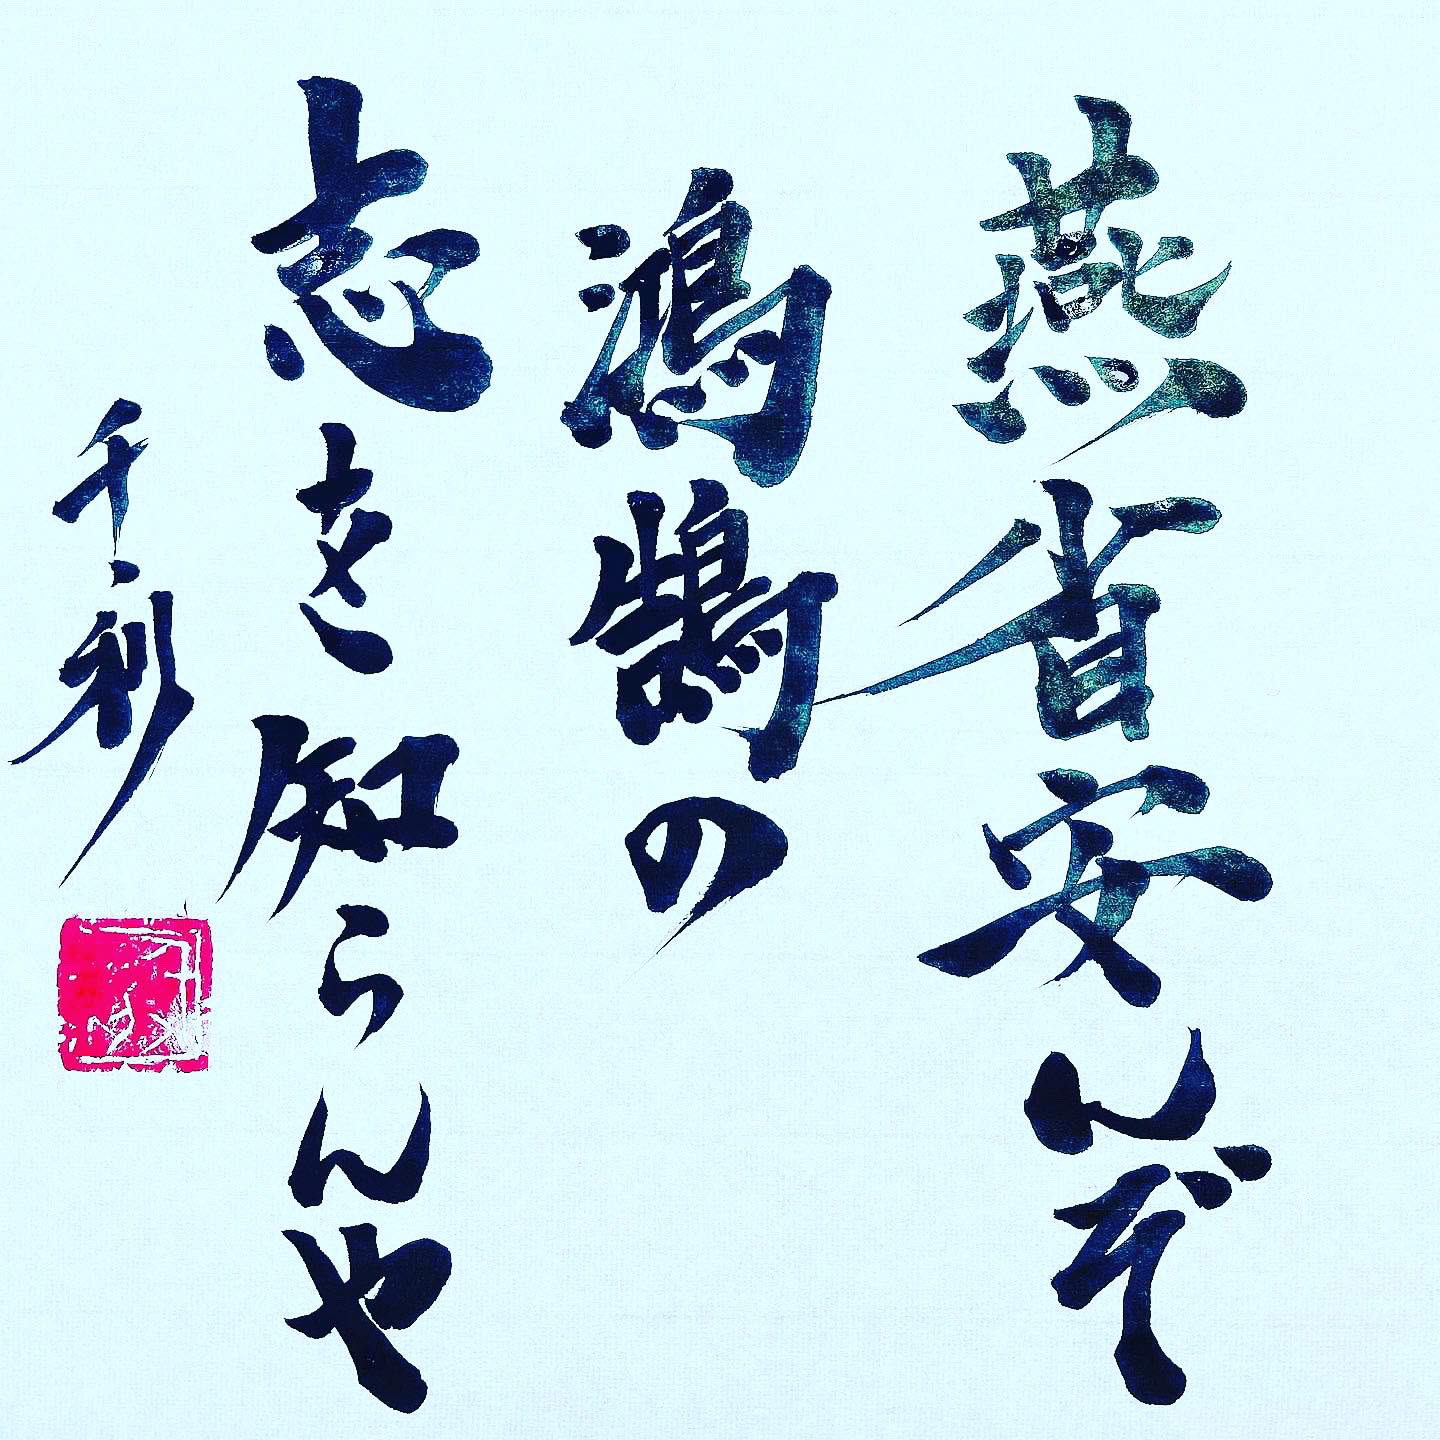 燕省安んぞ
鴻鵠の
志を知らんや
千